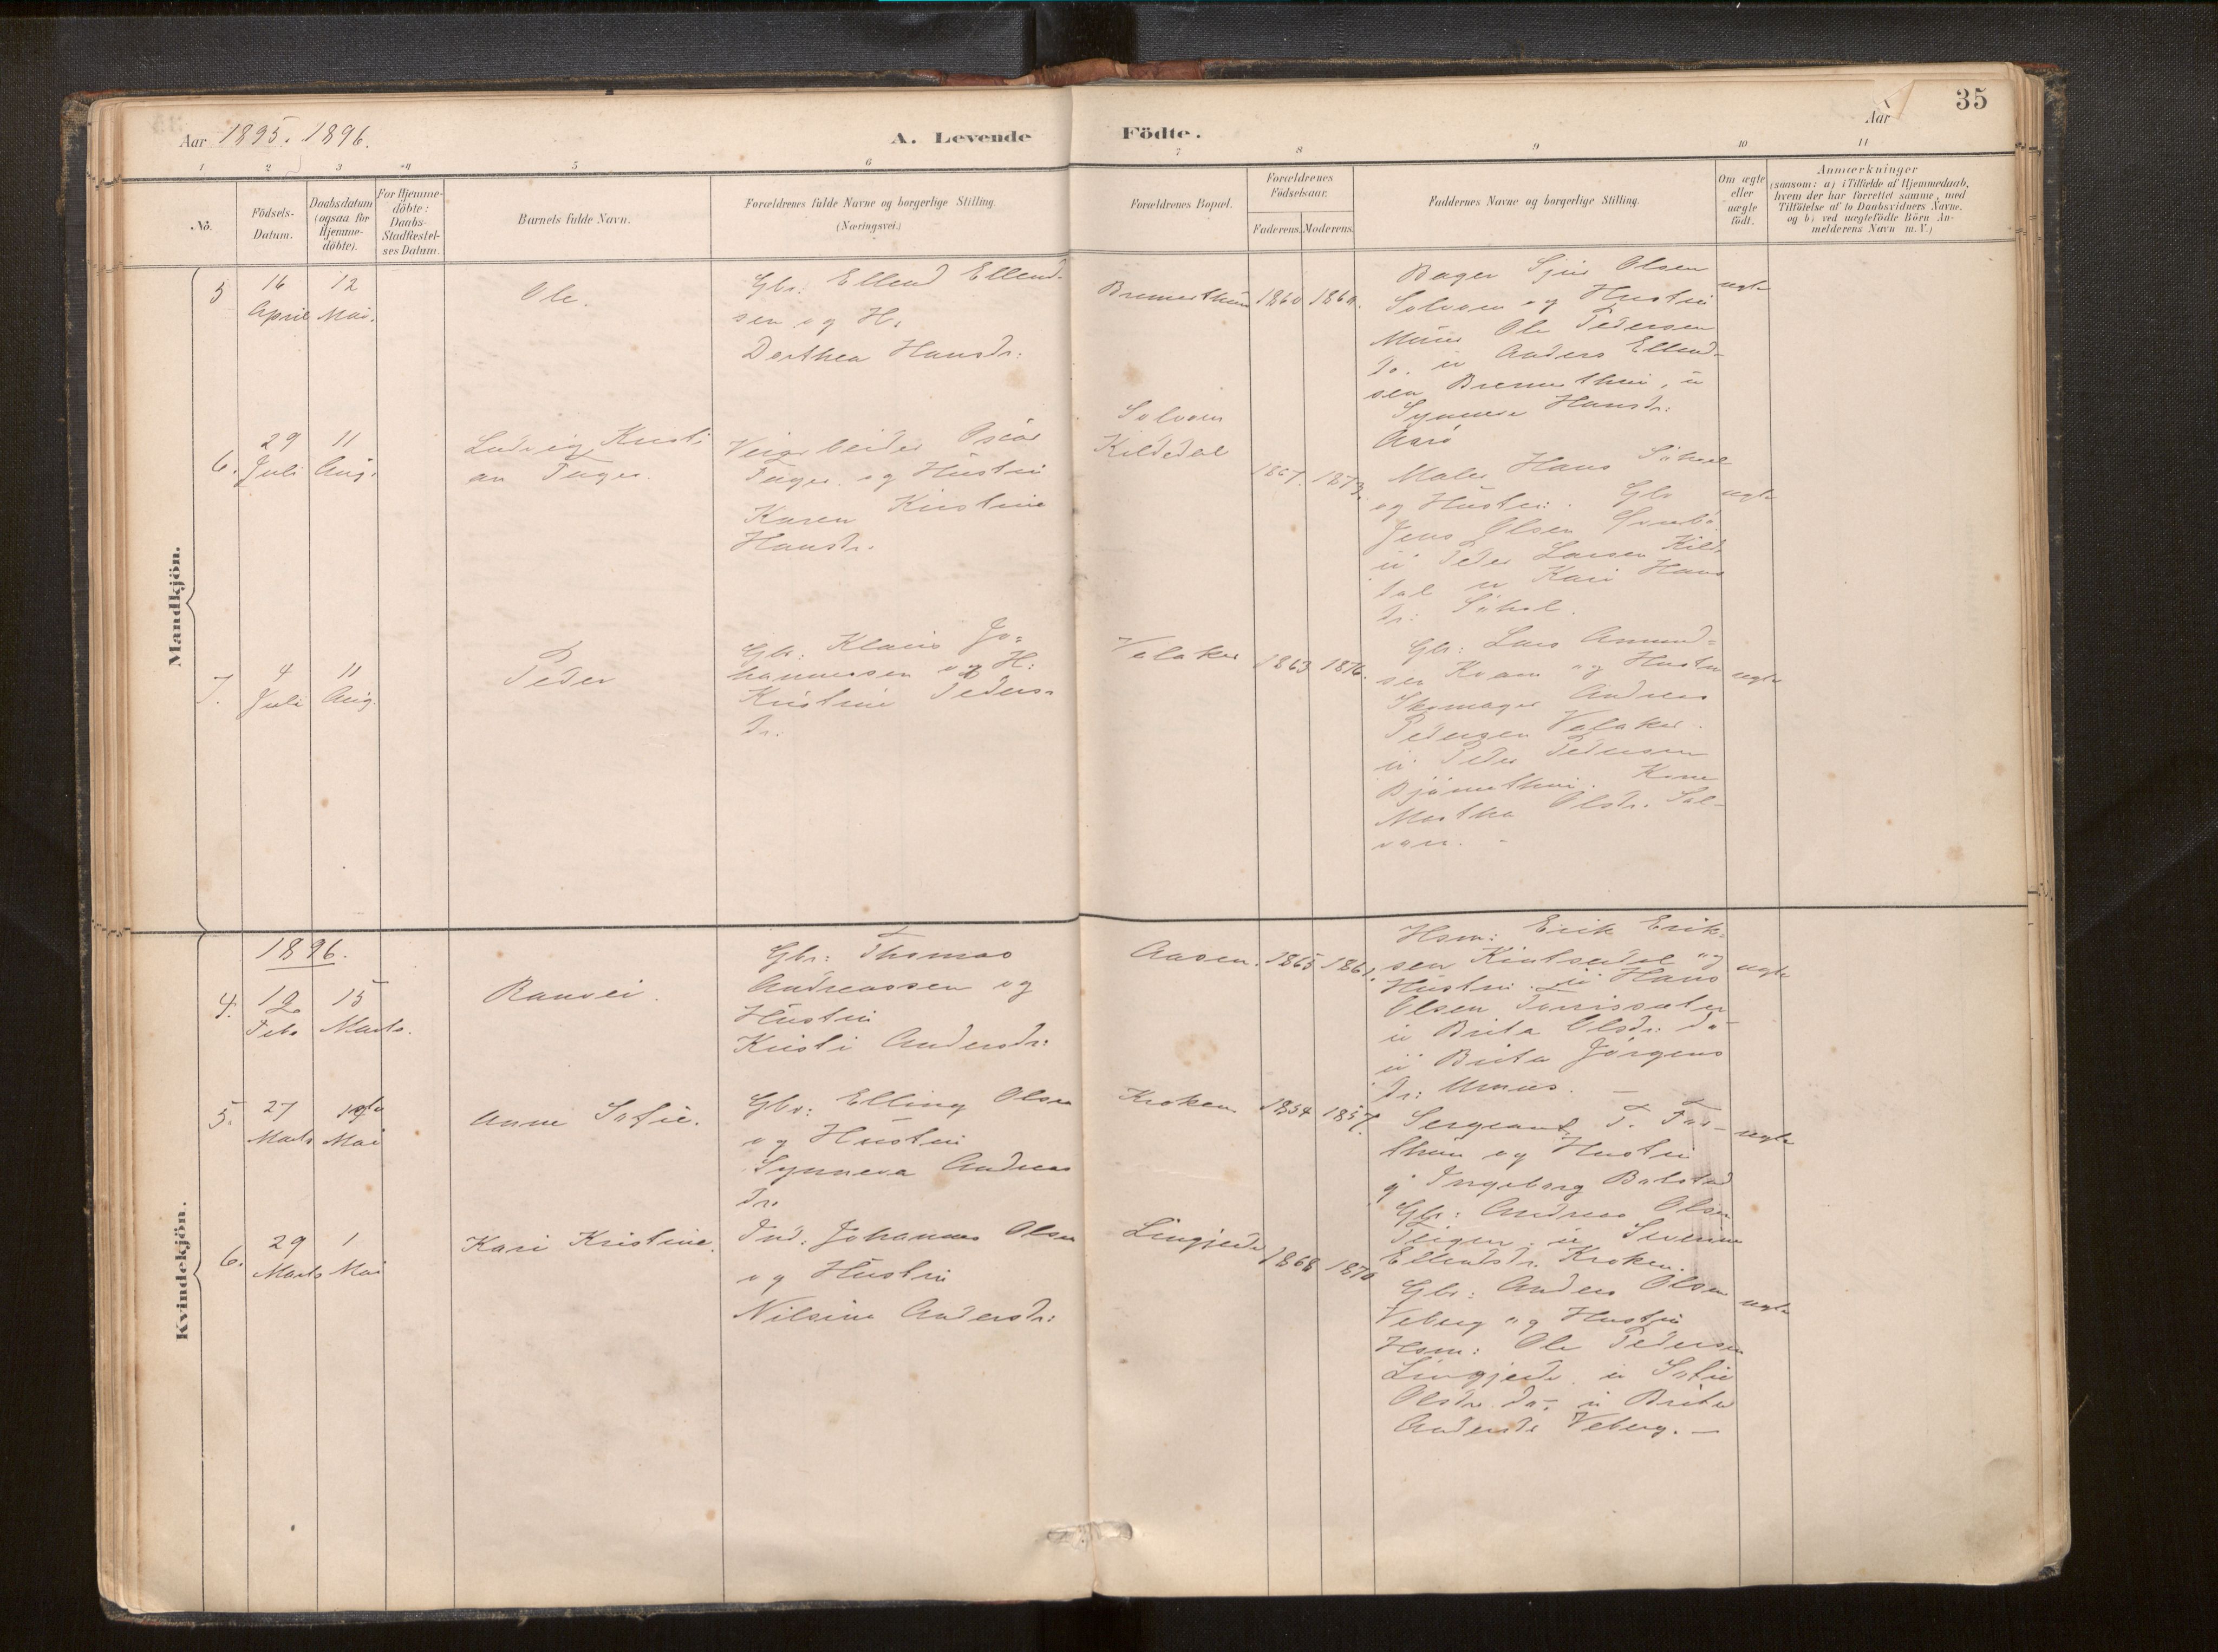 35
Aar 1895. 1896.
A. Levende Födte.
Aar
1 2 3 4 5 6 7 8 9 10 11
No.
Födsels-Datum.
Daabsdatum (ogsaa for Hjemme-döbte).
For Hjemme-döbte: Daabs-Stadfæstel-ses Datum.
Barnets fulde Navn.
Forældrenes fulde Navne og borgerlige Stilling.
(Næringsvei.)
Forældrenes Bopæl.
Forældrenes Födselsaar.
Faderens. Moderens.
Faddernes Navne og borgerlige Stilling.
Om ægte eller uægte födt.
Anmærkninger
(saasom: a) i Tilfælde af Hjemmedaab,
hvem der har forrettet samme, med
Tilföielse af to Daabsvidners Navne,
og b) ved uægtefödte Börn An-
melderens Navn m. V.)
Mandkjön.
5
16 April
12 Mai.
Ole.
Gbr. Ellend Ellend-
sen og H.
Dorthea Hansdr:
Bremerthun
1860
Bager Sjur Olsen
Solvorn og Hustru
Ole Pedersen
do. u Anders Ellend-
sen u
Synneva Hansdr:
ægte
6.
29 Juli
11 Aug.
Ludvig Kristi
an Tager.
Veiarbeider Oscar
Tager og Hustru
Karen Kirstine
Hansdr.
Solvorn
Kildedal
1867. 1873.
Maler Hans
og Hustru. Gbr
Jens Olsen
u Peder Larsen Kilde
dal u Kari Hans
dr:
ægte
7.
4 Juli
11 Aug.
Peder
Gbr: Klaus Jo=
hannessen og H:
Kristine Peders-
dr.
Volaker
1863 1876.
Gbr: Lars Amund=
sen Kvam og Hustru
Skomager Andreas
Pedersen Volaker.
u Peder Pedersen
Kone
Martha Olsdr. Sol-
vorn. -
ægte
Kvindekjön.
1896.
4.
12 Feb
15 Marts.
Ransei.
Gbr: Thomas
Andreassen og
Hustru
Kristi Andersdr:
Aasen.
1865
Hsm: Erik Erik-
sen og
Hustru. u Hans
Olsen
u Brita Olsdr: do
u Brita Jörgens
dr: Urnes. —
ægte
5.
27 Marts
Mai
Anne Sofie.
Gbr: Elling Olsen
og Hustru
Synneva Andreas
dr.
Kroken
1854 1857.
Sergeant T.
thun og Hustru
g Ingeborg Bolstad
Gbr: Andreas Olsen
Teigen. u Severine
Ellendsdr. Kroken.
ægte
6.
29 Marts
1 Mai
Kari Kristine.
Ind. Johannes Olsen
og Hustru
Nilsine Andersdr:
Lingjerde
1868 1870
Gbr: Anders Olsen
Veberg og Hustru
Hsm: Ole Pedersen
Lingjerde. u Sofie
Olsdr do. u Brita
Andersdr Veberg. —
ægte